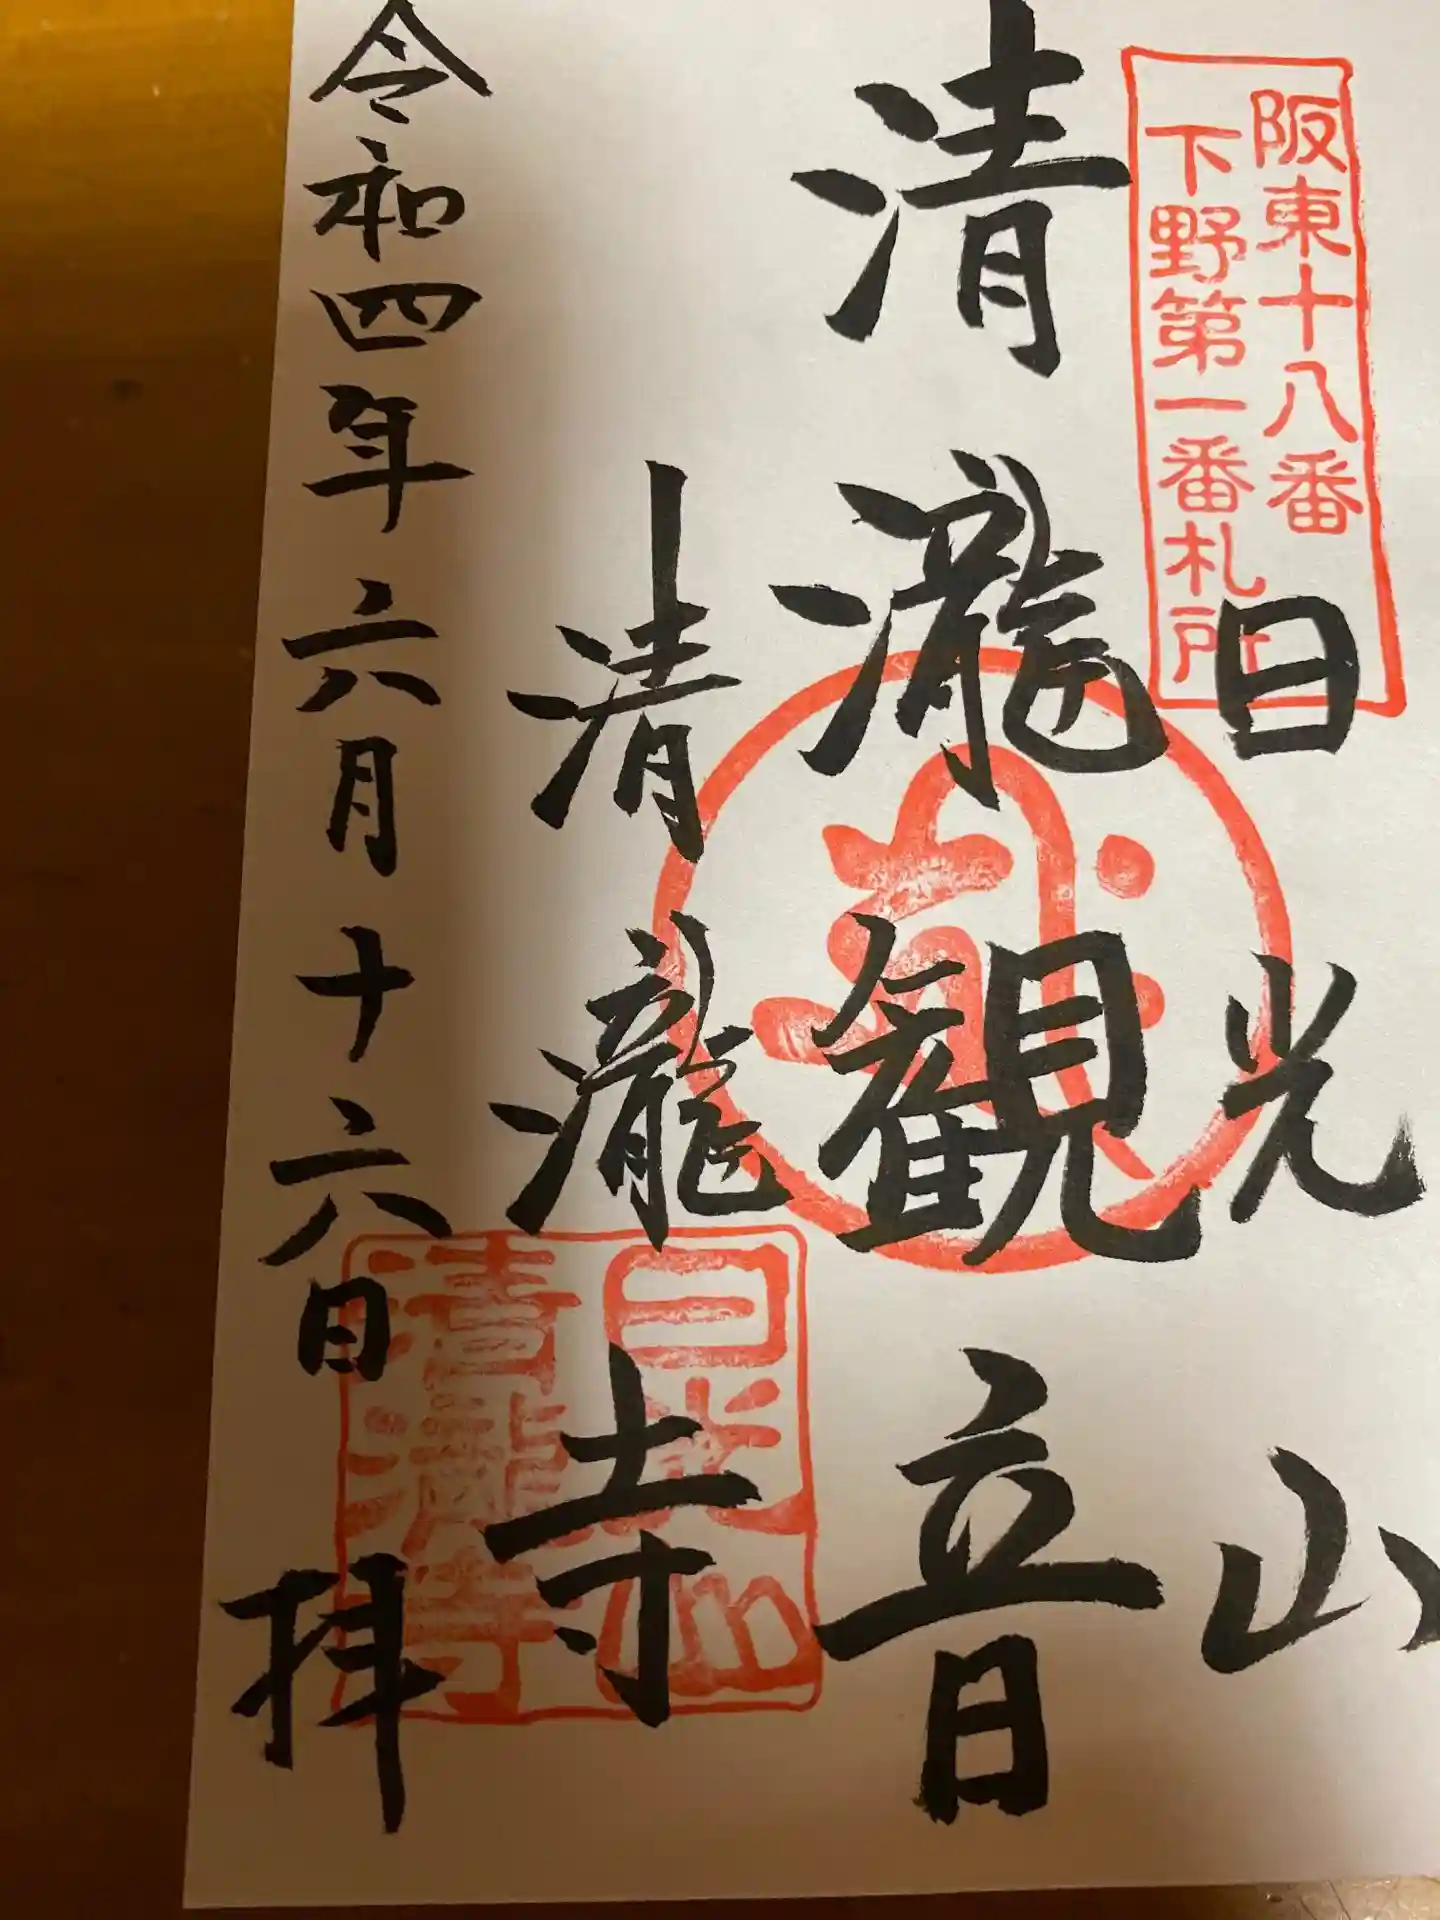 阪東十八番
下野第一番札所
日光山
清瀧観音
清瀧寺
日光山
清瀧寺
令和四年六月十六日
拝